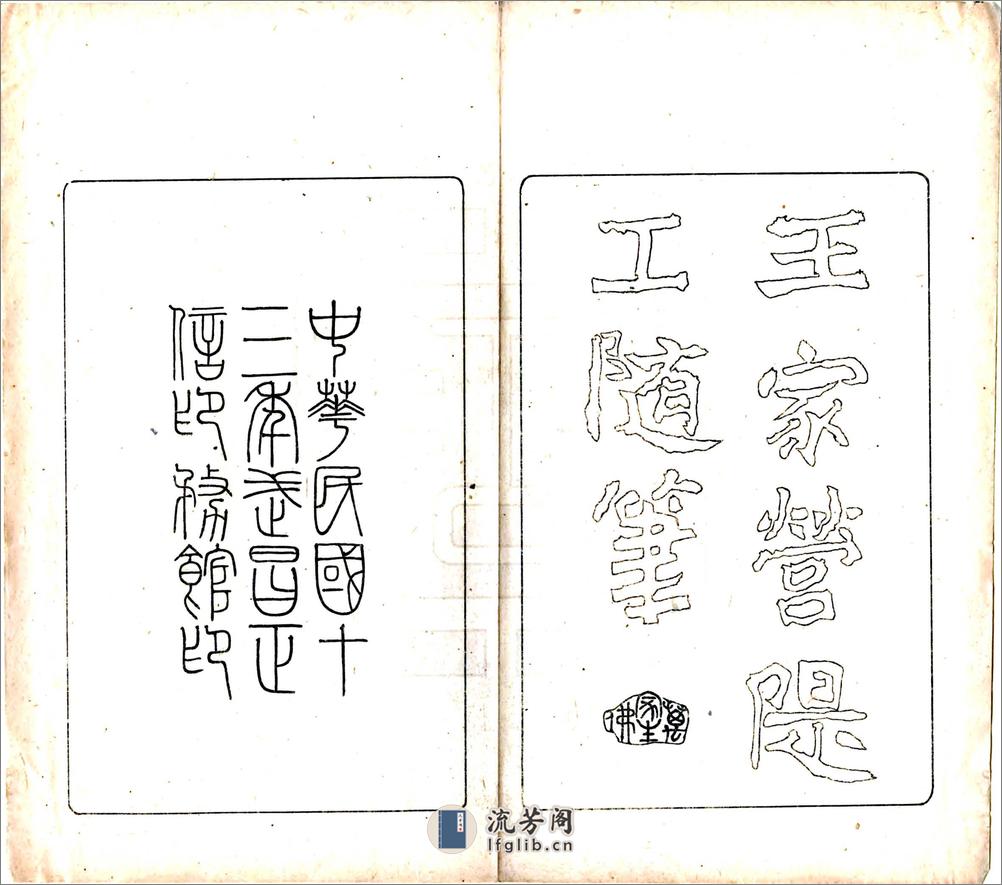 王家營隄
工随筆
中華民國十
三年武昌正
信印務館印
流芳阁
lfglib.cn